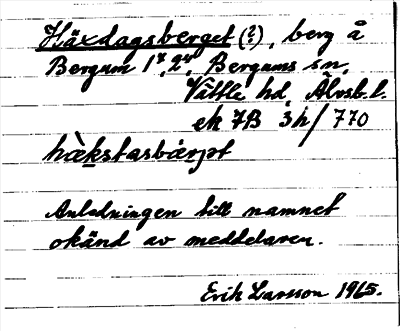 Häxdagsberget (?), berg å
Bergum 1⁴, 2⁴, Bergums sn,
Vättle hd, Älvsb. l.
ek 7B 3h/770
hæ̀kstasbær̨jət
Anledningen till namnet
okänd av meddelaren.
Erik Larsson 1965.